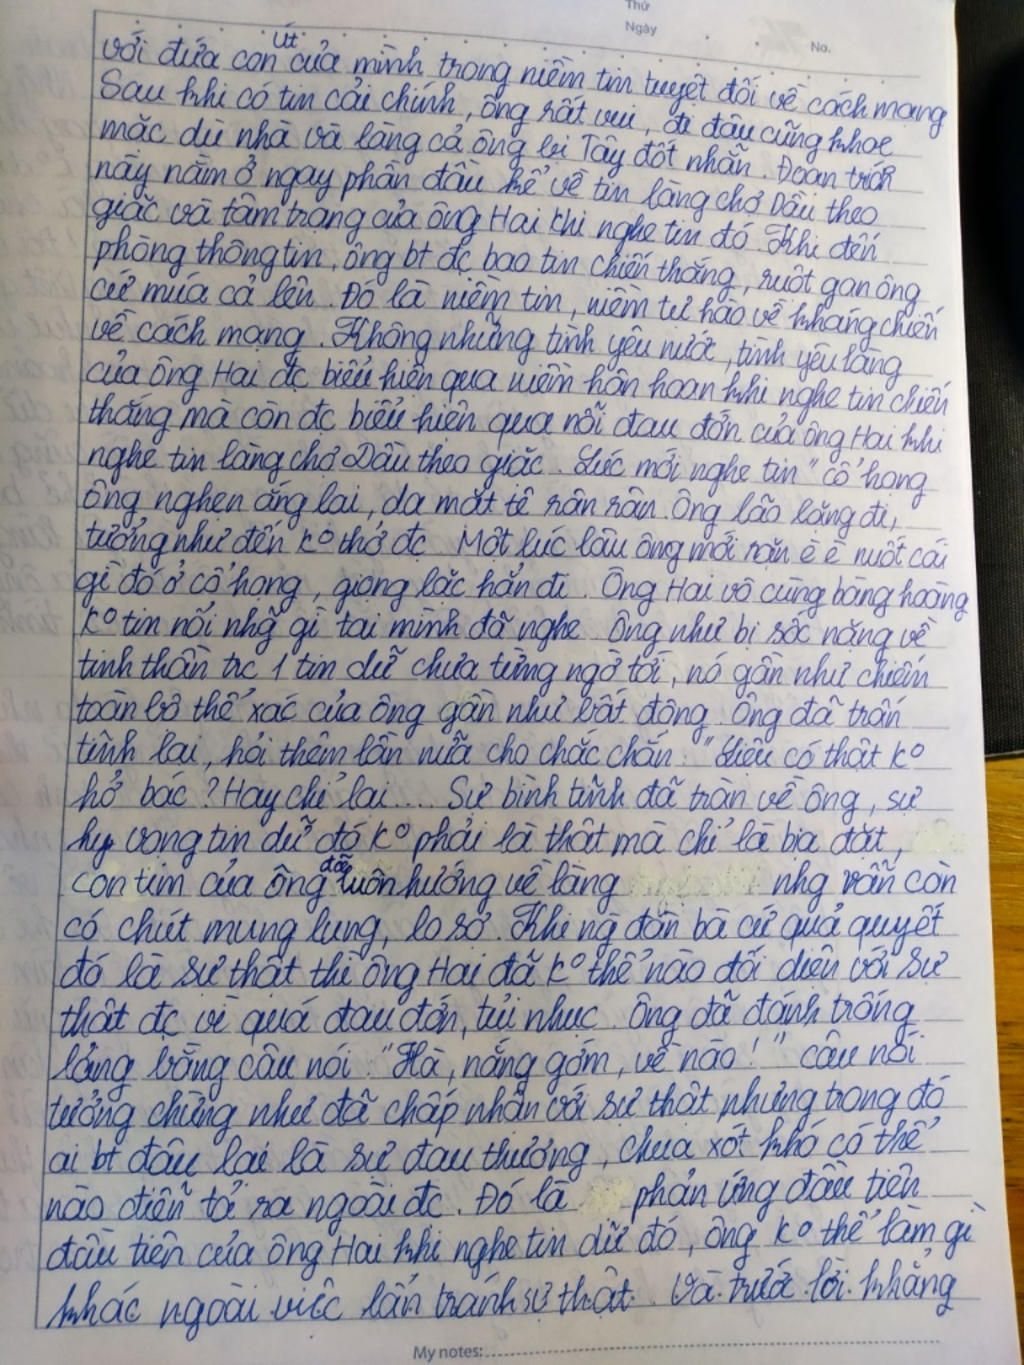 Thứ
Ngày
No.
Út
với đứa con của mình trong niềm tin tuyệt đối về cách mạng
Sau khi có tin cải chính, ông rất vui, đi đâu cũng khoe
mặc dù nhà và làng cả ông bị Tây đốt nhẵn. Đoạn trích
này nằm ở ngay phần đầu kể về tin làng chợ Dầu theo
giặc và tâm trạng của ông Hai khi nghe tin đó. Khi đến
phòng thông tin, ông bt đc bao tin chiến thắng, ruột gan ông
cứ múa cả lên. Đó là niềm tin, niềm tự hào về kháng chiến
về cách mạng. Không những tình yêu nước, tình yêu làng
của ông Hai đc biểu hiện qua niềm hân hoan khi nghe tin chiến
thắng mà còn đc biểu hiện qua nỗi đau đớn của ông Hai khi
nghe tin làng chợ Dầu theo giặc. Lúc mới nghe tin "cổ họng
ông nghẹn ắng lại, da mặt tê rân rân. Ông lão lặng đi,
tưởng như đến k° thở đc. Một lúc lâu ông mới rặn è è nuốt cái
gì đó ở cổ họng, giọng lạc hẳn đi. Ông Hai vô cùng bàng hoàng
k° tin nổi nhg~ gì tai mình đã nghe. Ông như bị sốc nặng về
tinh thần trc 1 tin dữ chưa từng ngờ tới, nó gần như chiến
toàn bộ thể xác của ông gần như bất động. Ông đã trấn
tĩnh lại, hỏi thêm lần nữa cho chắc chắn: "Liệu có thật k°
hở bác? Hay chỉ lại.... Sự bình tĩnh đã tràn về ông, sự
hy vọng tin dữ đó k° phải là thật mà chỉ là bịa đặt,
đã
con tim của ông luôn hướng về làng nhg vẫn còn
có chút mung lung, lo sợ. Khi ng đàn bà cứ quả quyết
đó là sự thật thì ông Hai đã k° thể nào đối diện với sự
thật đc vì quá đau đớn, tủi nhục. Ông đã đánh trống
lảng bằng câu nói: "Hà, nắng gớm, về nào!" câu nói
tưởng chừng như đã chấp nhận với sự thật nhưng trong đó
ai bt đâu lại là sự đau thương, chua xót khó có thể
nào diễn tả ra ngoài đc. Đó là phản ứng đầu tiên
đầu tiên của ông Hai khi nghe tin dữ đó, ông k° thể làm gì
khác ngoài việc lẩn tránh sự thật. Và trước lời khẳng
My notes: